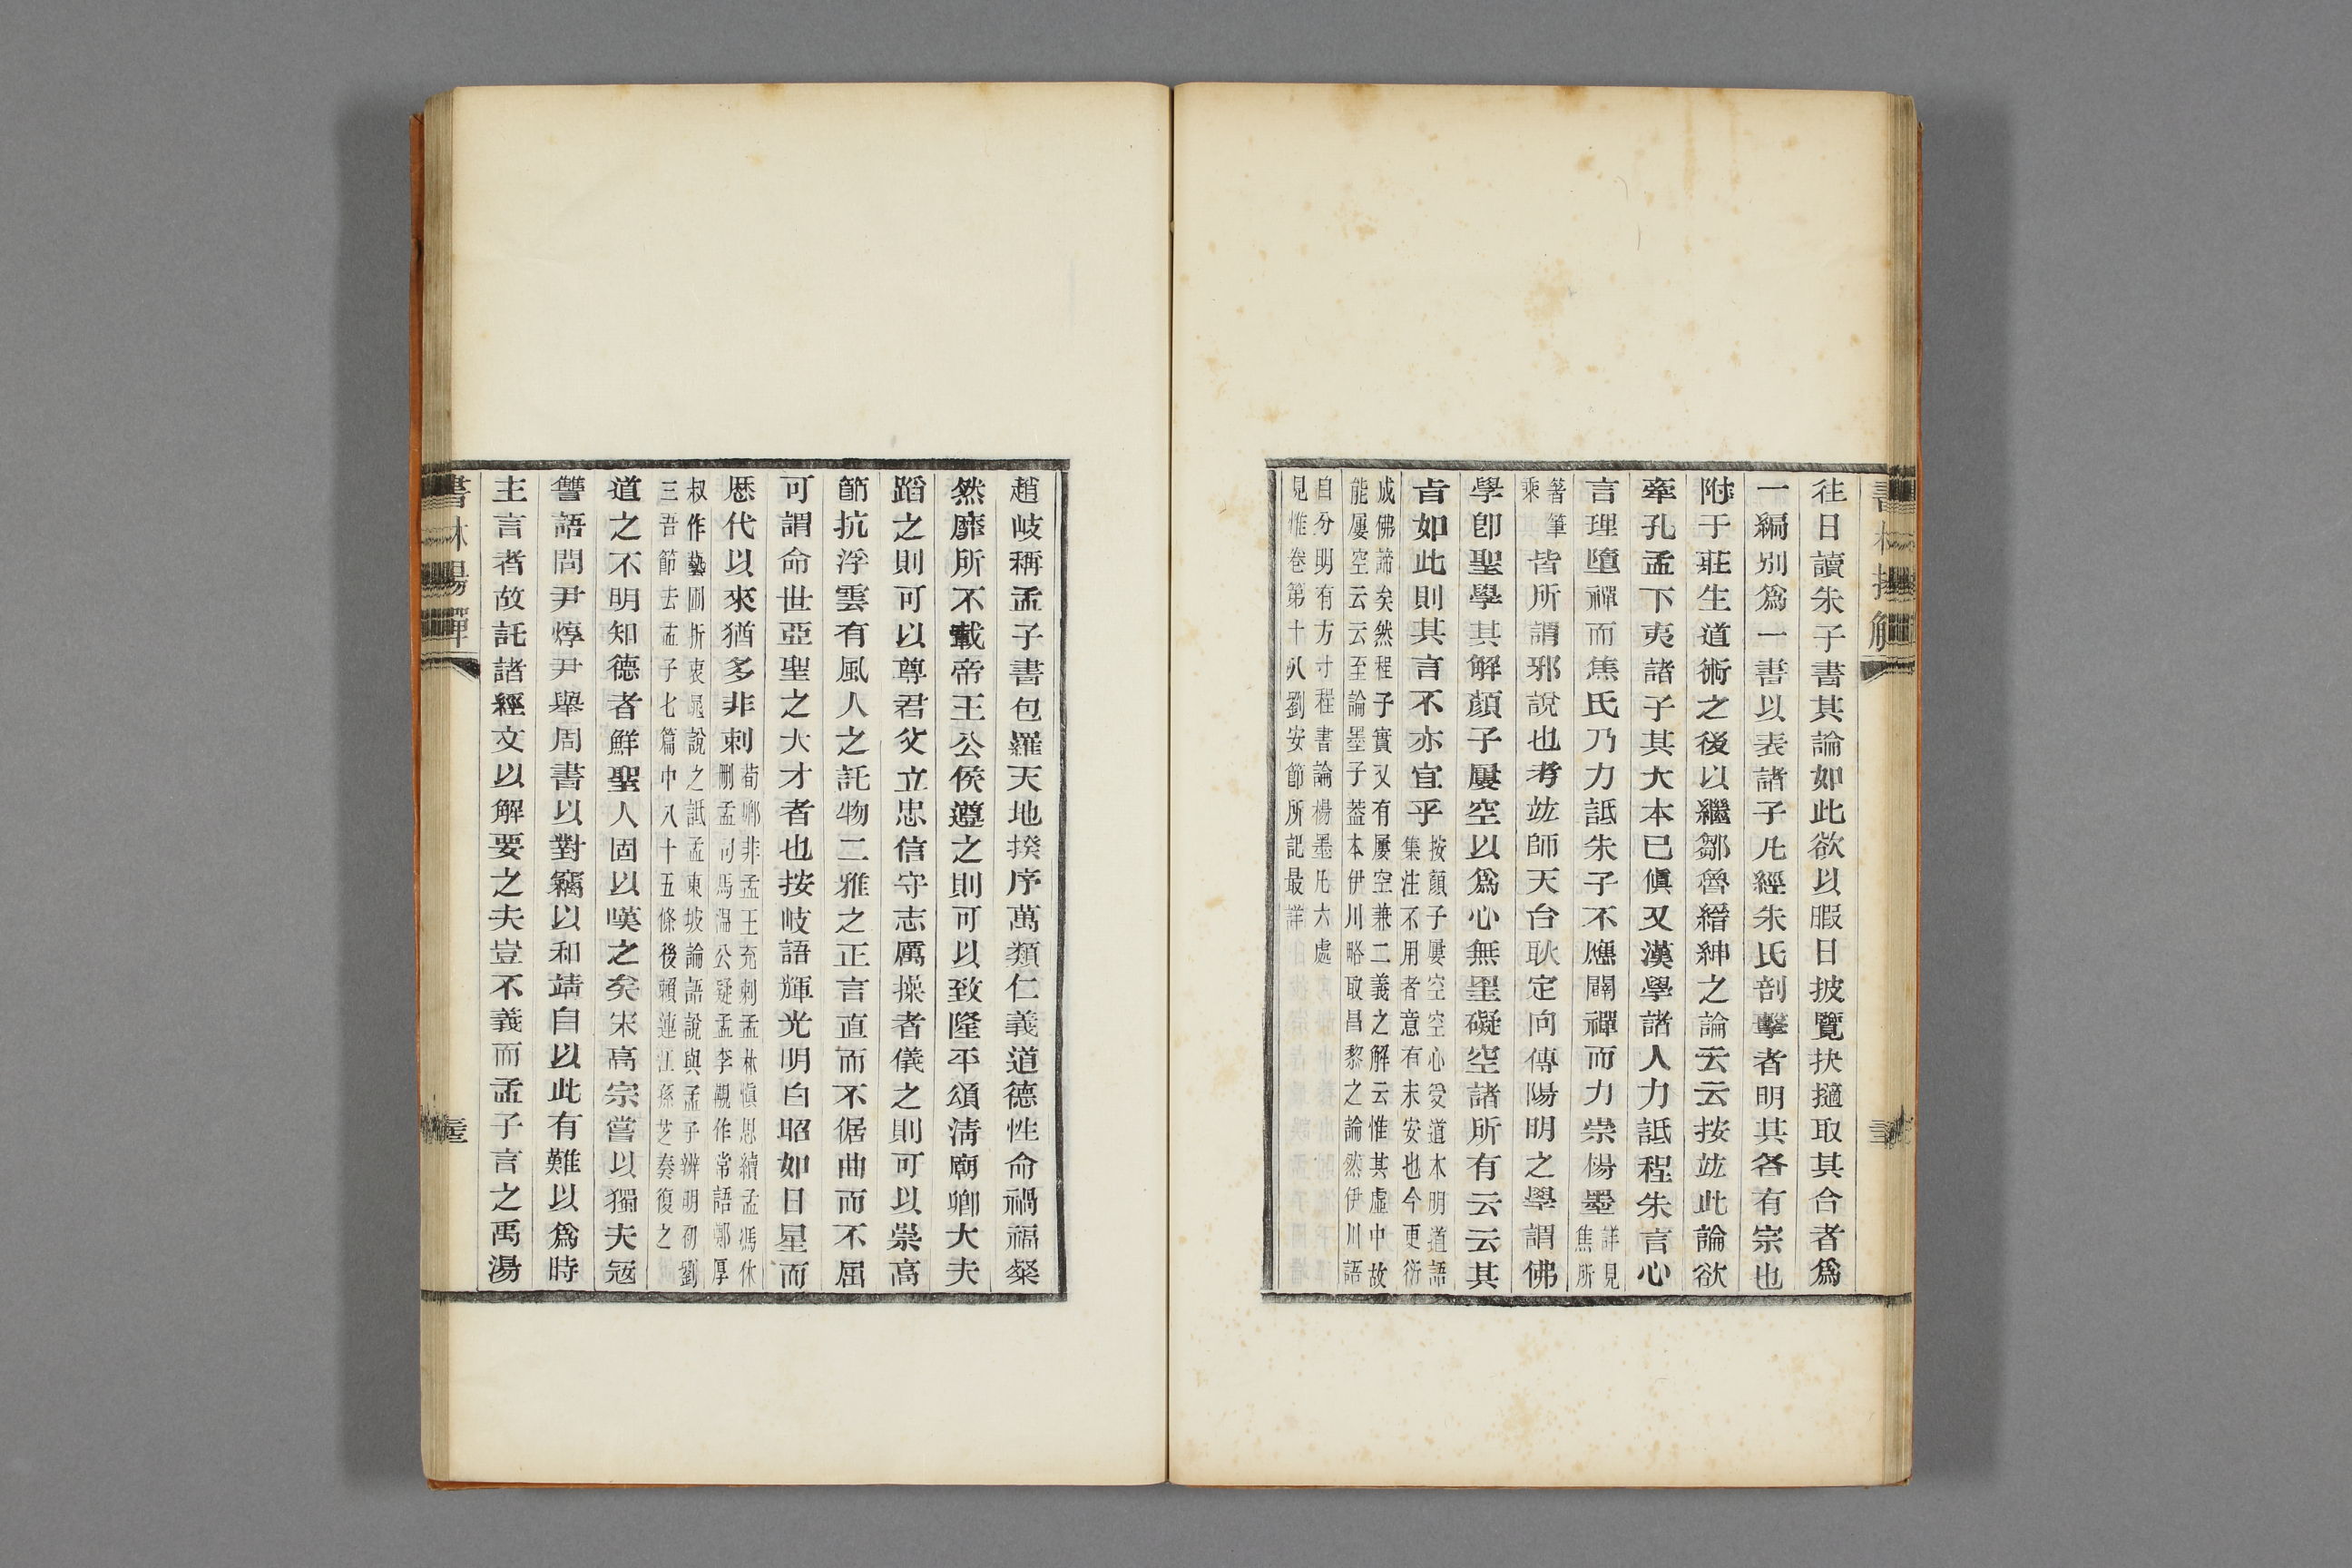 往日讀朱子書其論如此欲以暇日披覽抉擿取其合者爲
一編别爲一書以表諸子凡經朱氏剖擊者明其各有宗也
附于莊生道術之後以繼鄒魯縉紳之論云云按竑此論欲
牽孔孟下夷諸子其大本已傎又漢學諸人力詆程朱言心
言理墮禪而焦氏乃力詆朱子不應闢禪而力崇楊墨詳見焦所
著筆乘皆所謂邪說也考竑師天台耿定向傳陽明之學謂佛
學卽聖學其解顏子屢空以爲心無罣礙空諸所有云云其
旨如此則其言不亦宜乎按顏子屢空空心受道本明道語集注不用者意有未安也今更衍
成佛諦矣然程子實又有屢空兼二義之解云惟其虛中故能屢空云云至論墨子葢本伊川略取昌黎之論然伊川語
自分明有方寸程書論楊墨凡六處見惟卷第十八劉安節所記最詳
趙岐稱孟子書包羅天地揆序萬類仁義道德性命禍福粲
然靡所不載帝王公侯遵之則可以致隆平頌淸廟卿大夫
蹈之則可以尊君父立忠信守志厲操者儀之則可以崇高
節抗浮雲有風人之託物二雅之正言直而不倨曲而不屈
可謂命世亞聖之大才者也按岐語輝光明白昭如日星而
歷代以來猶多非刺荀卿非孟王充刺孟林愼思續孟馮休刪孟司馬溫公疑孟李覯作常語鄭厚
叔作藝圃折衷晁說之詆孟東坡論語說與孟子辨明初劉三吾節去孟子七篇中八十五條後賴連江孫芝奏復之
道之不明知德者鮮聖人固以嘆之矣宋高宗嘗以獨夫宼
讐語問尹焞尹舉周書以對竊以和靖自以此有難以爲時
主言者故託諸經文以解要之夫豈不義而孟子言之禹湯
書林揚觶